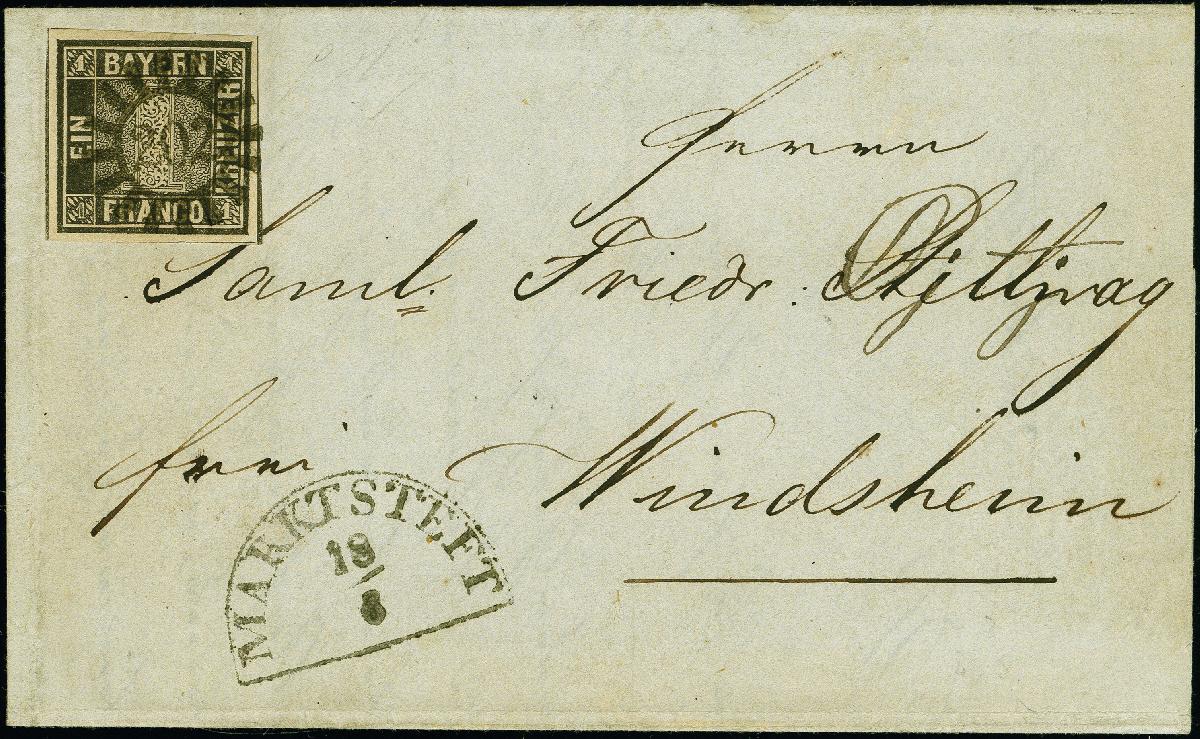 1 BAYERN 1
EIN
KREUZER
1 FRANCO 1
Herrn
Saml. Friedr.
frei Windsheim
MARKTSTEFT
18/